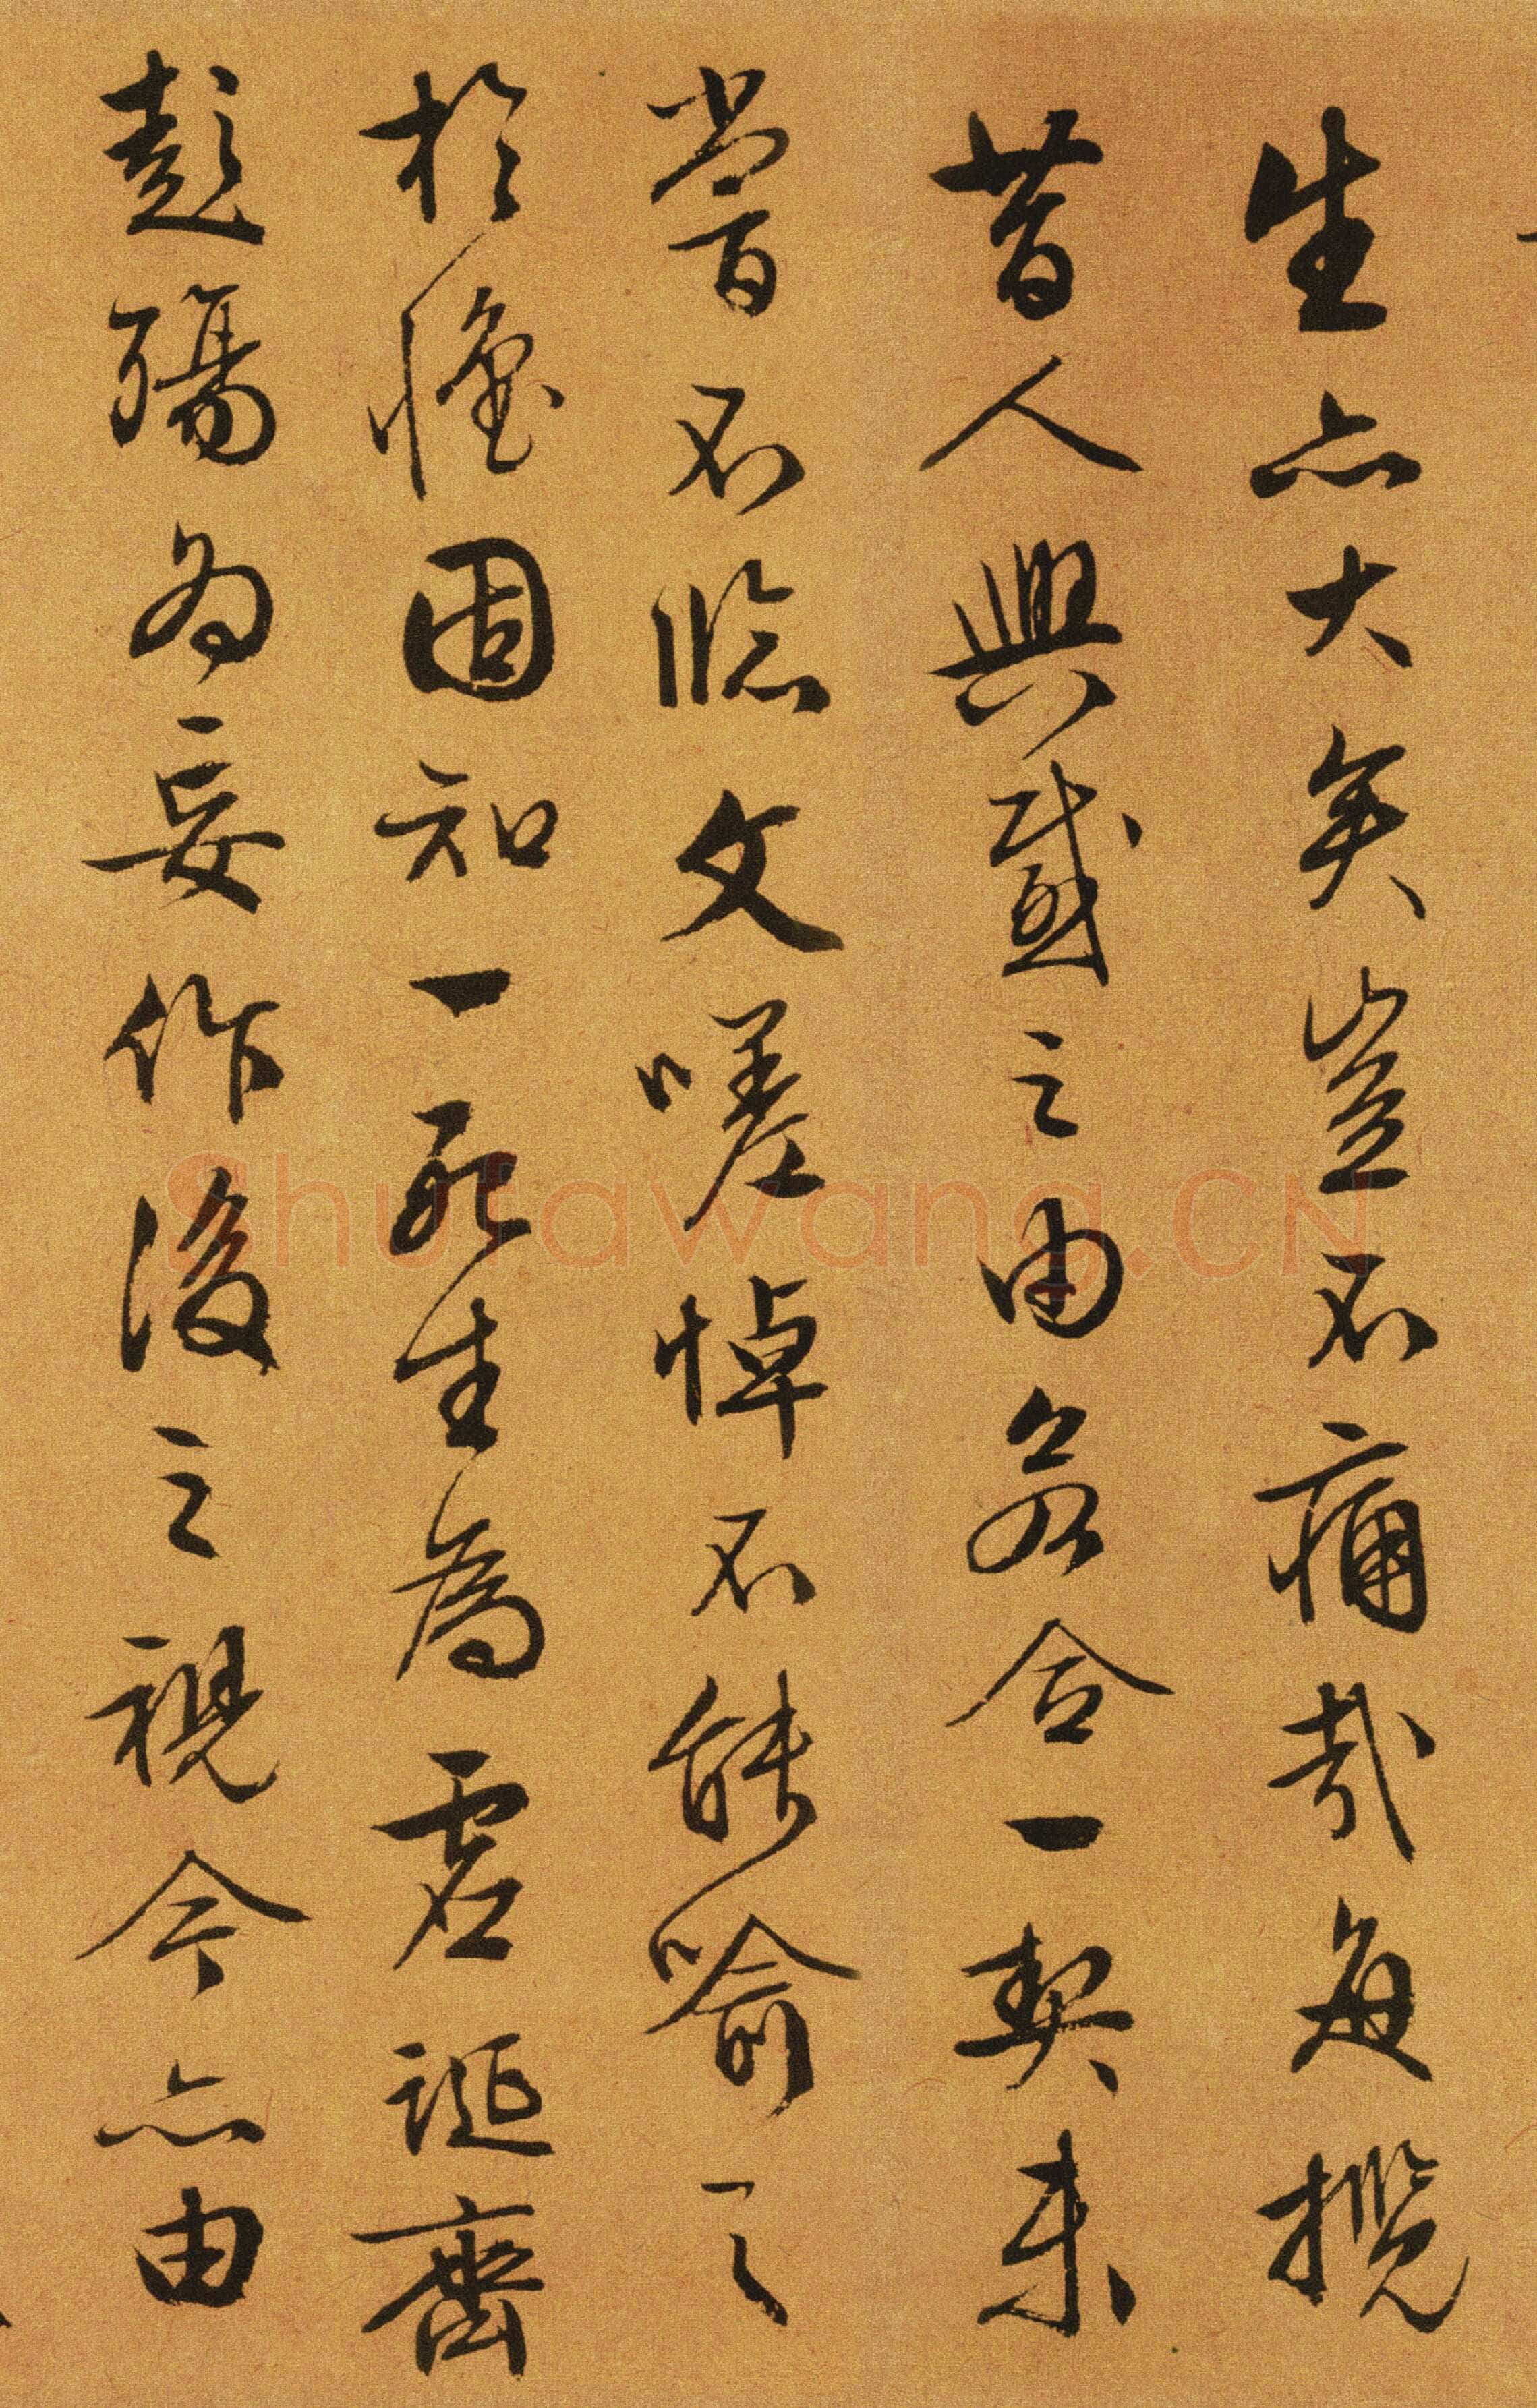 生亦大矣豈不痛哉每攬
昔人興感之由若合一契未
嘗不臨文嗟悼不能喻之
於懷固知一死生為虛誕齊
彭殤為妄作後之視今亦由
Shufawang.CN